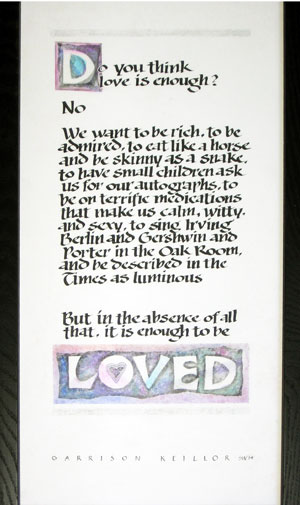 Do you think
love is enough?
No
We want to be rich, to be
admired, to eat like a horse
and be skinny as a snake,
to have small children ask
us for our autographs, to
be on terrific medications
that make us calm, witty,
and sexy, to sing Irving
Berlin and Gershwin and
Porter in the Oak Room,
and be described in the
Times as luminous
But in the absence of all
that, it is enough to be
LOVED
GARRISON KEILLOR